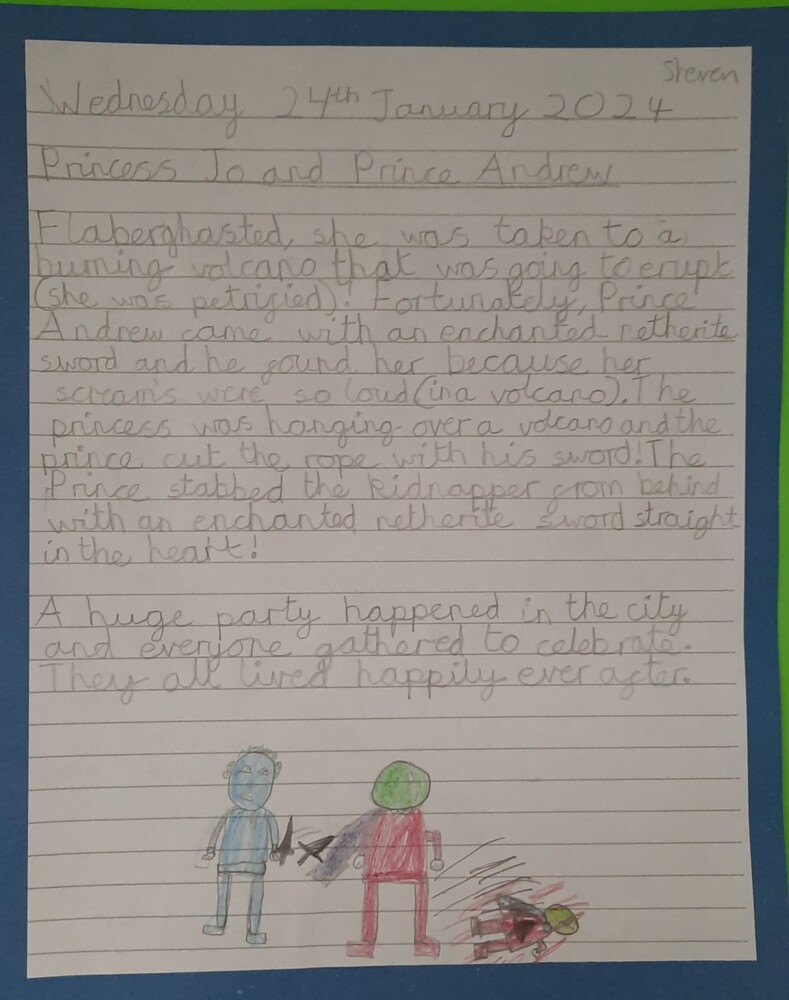 Steven
Wednesday 24th January 2024
Princess Jo and Prince Andrew
Flaberghasted, she was taken to a
burning volcano that was going to erupt
(she was petrified)! Fortunately, Prince
Andrew came with an enchanted netherite
sword and he found her because her
scream's were so loud (in a volcano). The
princess was hanging over a volcano and the
prince cut the rope with his sword! The
Prince stabbed the kidnapper from behind
with an enchanted netherite sword straight
in the heart!
A huge party happened in the city
and everyone gathered to celebrate.
They all lived happily ever after.